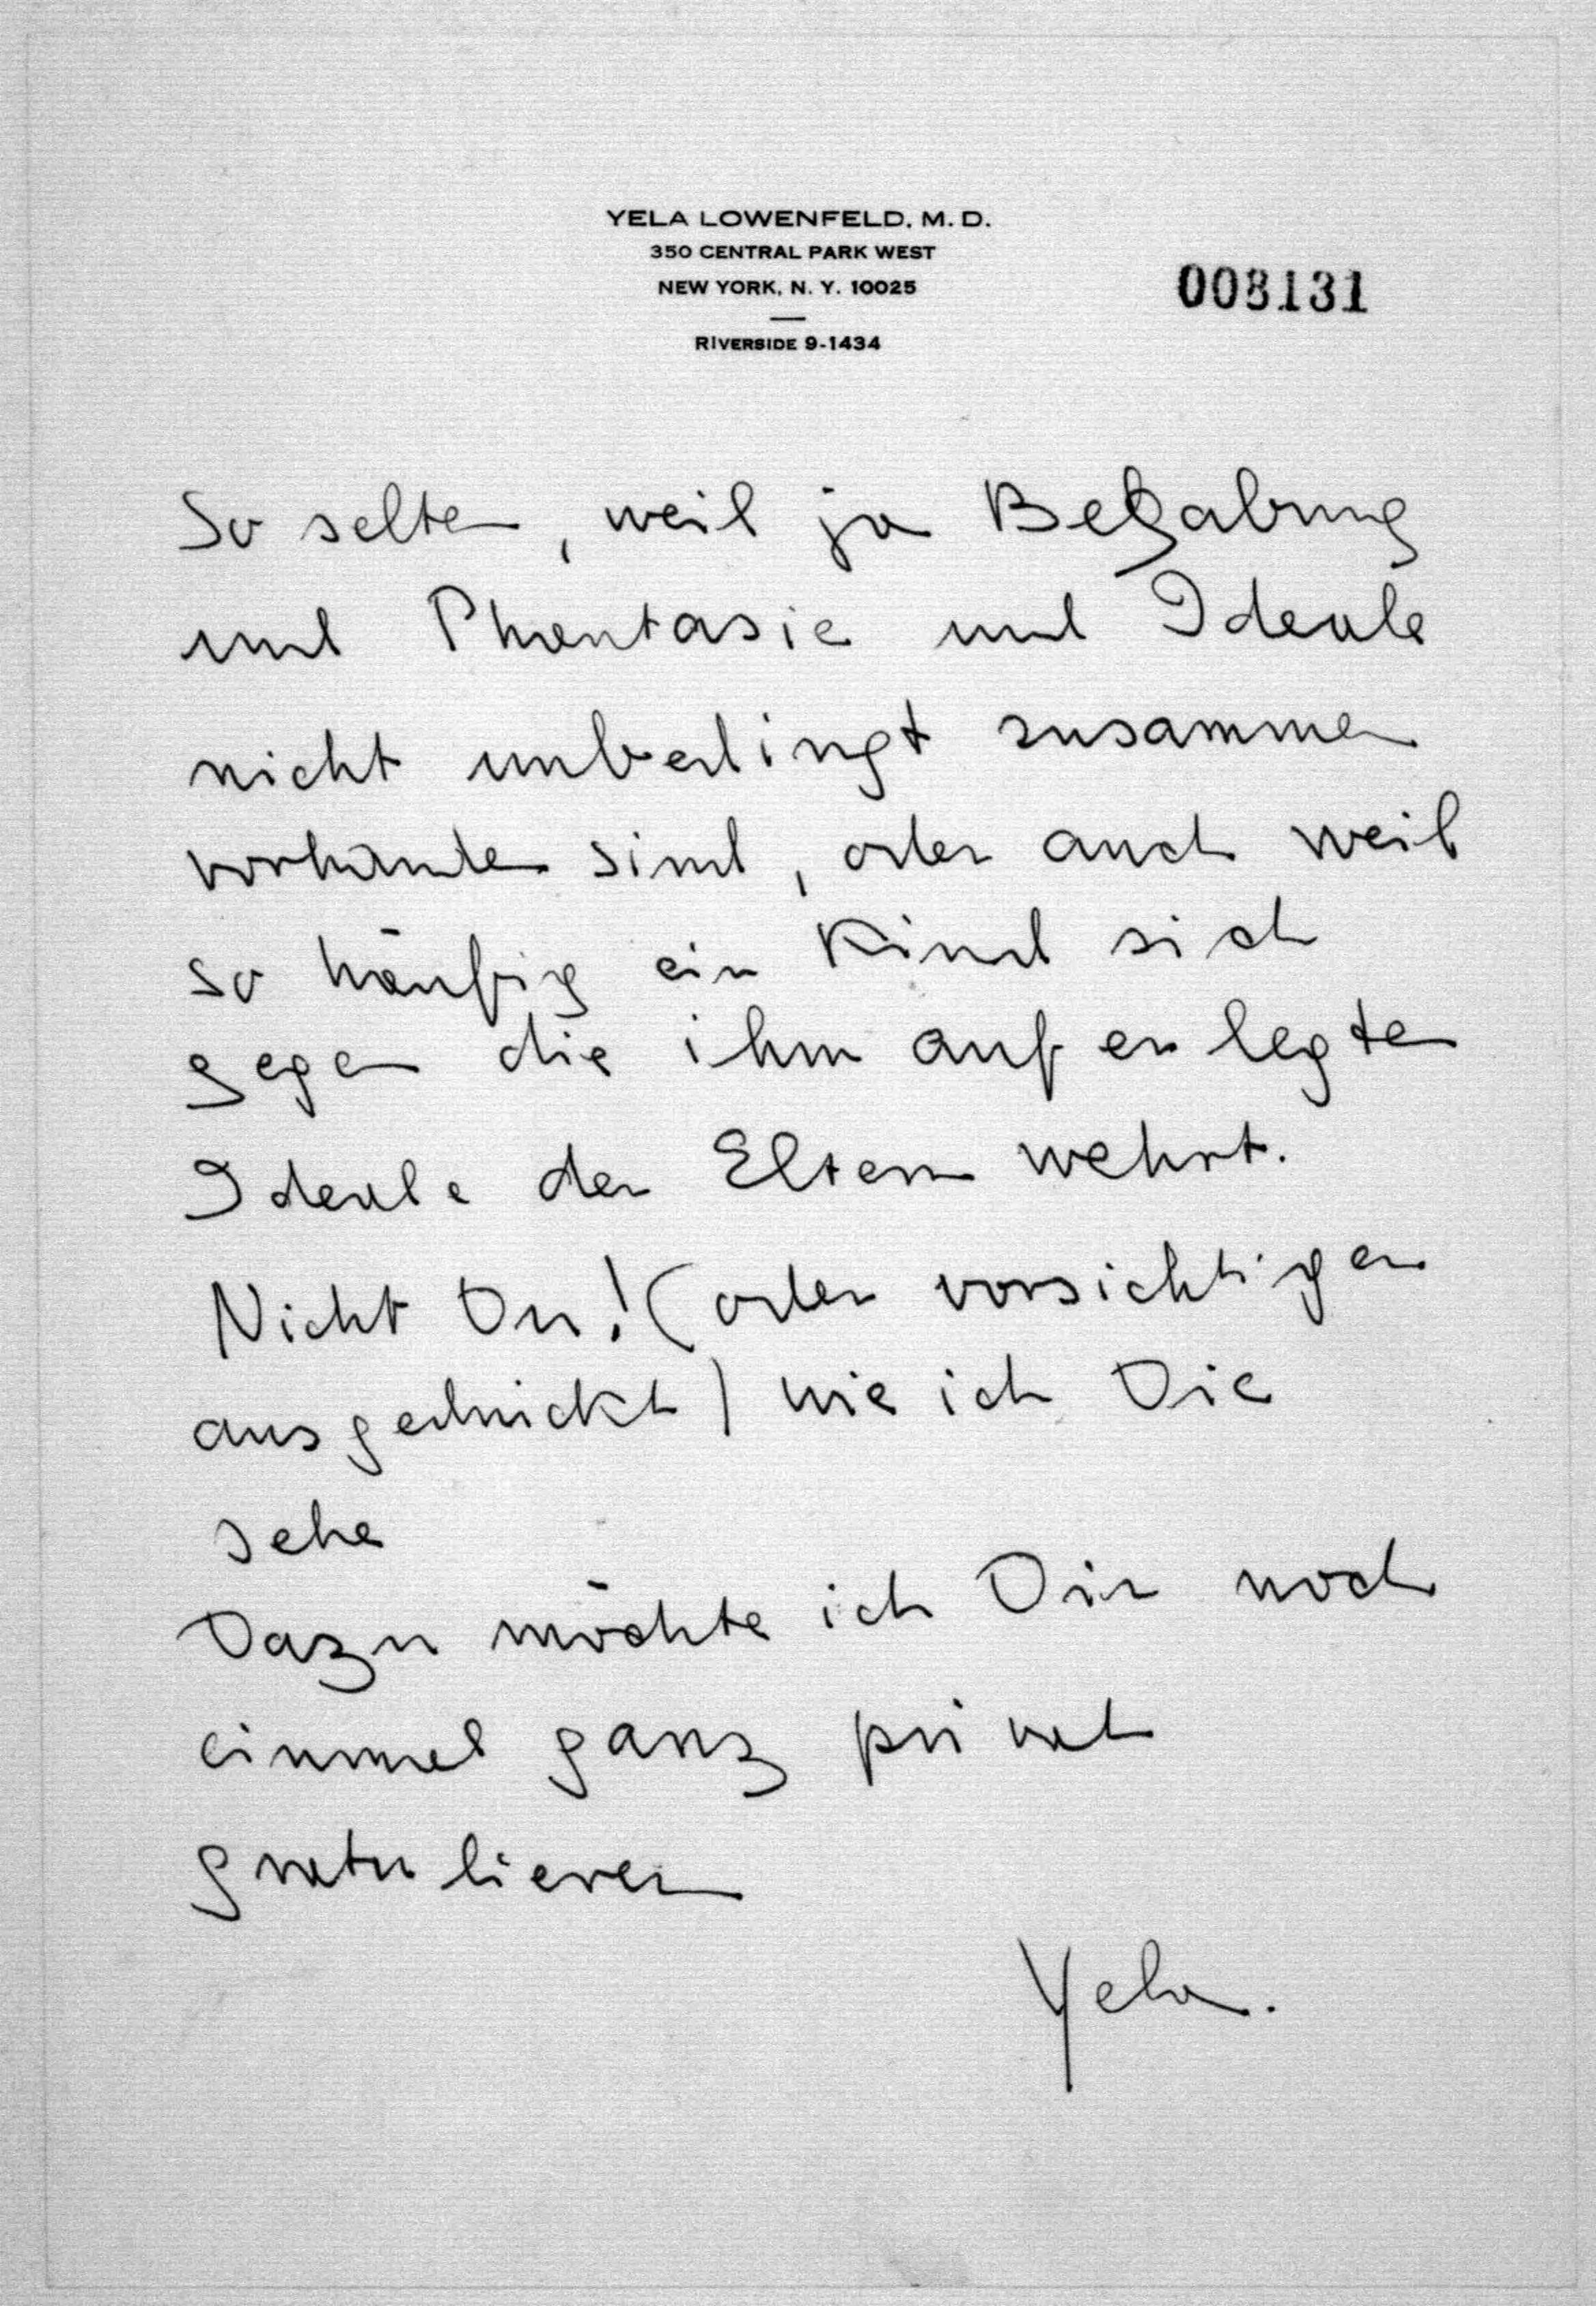 YELA LOWENFELD, M. D.
350 CENTRAL PARK WEST
NEW YORK, N. Y. 10025
008131
RIVERSIDE 9-1434
So selten, weil ja Begabung
und Phantasie und Ideale
nicht unbedingt zusammen
vorhanden sind, oder auch weil
so häufig ein Kind sich
gegen die ihm auferlegten
Ideale der Eltern wehrt.
Nicht Du! (oder vorsichtiger
ausgedrückt) wie ich Die
sehe
Dazu möchte ich Dir noch
einmal ganz privat
gratulieren
Yela.